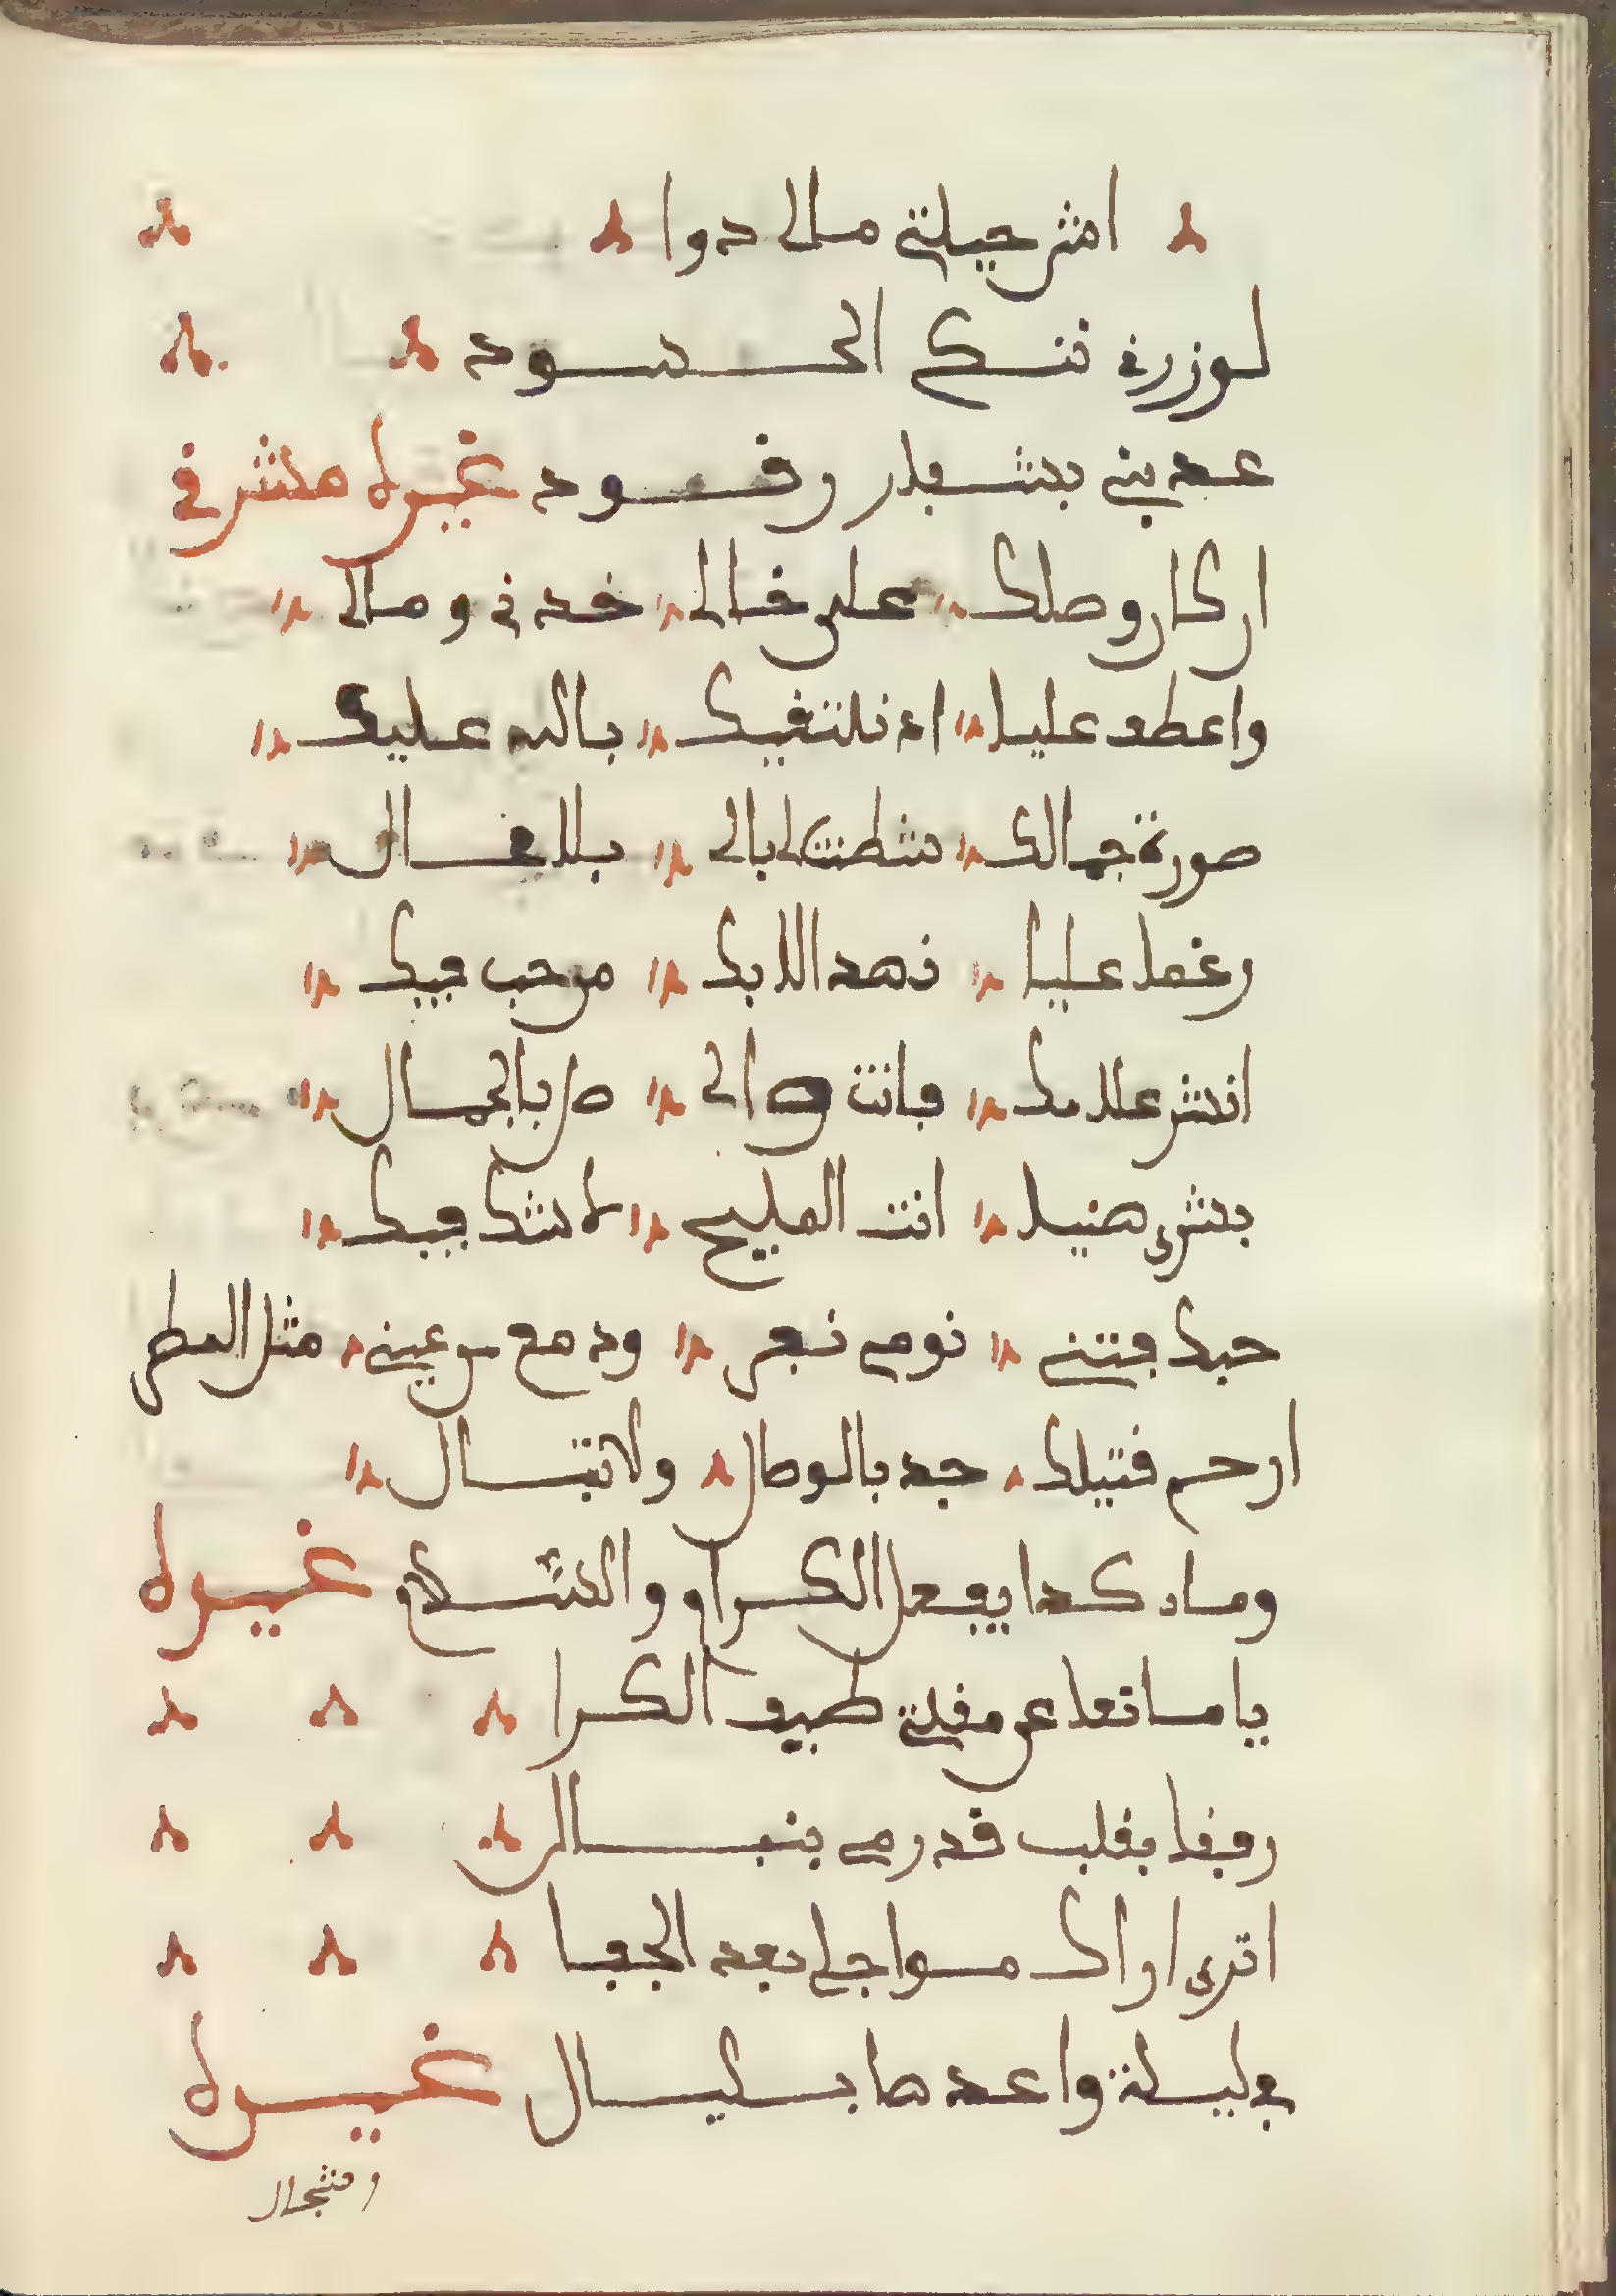 اش حيلتي مالي دوا
لوزرني ننكي الحسود
عديني بشبار رفود غيره مشرفي
ان كان وصلك على فالي خدني ومالي
واعطف عليا اد نلتفيك بالله عليك
صورة جمالك شطنت لبالي بلا يفال
رغما عليا نهد اللا بك من حب فيك
انش علامك فانت والي صل بالجمال
بشر هنيا انت المليح لا شك فيك
حبك فتني نومي نفر ودمع من عيني مثل المطر
ارحم فتيلك جد بالوصال ولا تبال
وما كدا يفعل الكرام والسلام غيره
يا مانعا عن مفلتي طيف الكرا
رففا بفلب فد رمي بنبال
اترى اراك مواجلي بعد الجفا
في ليلة واعدها بليال غيره